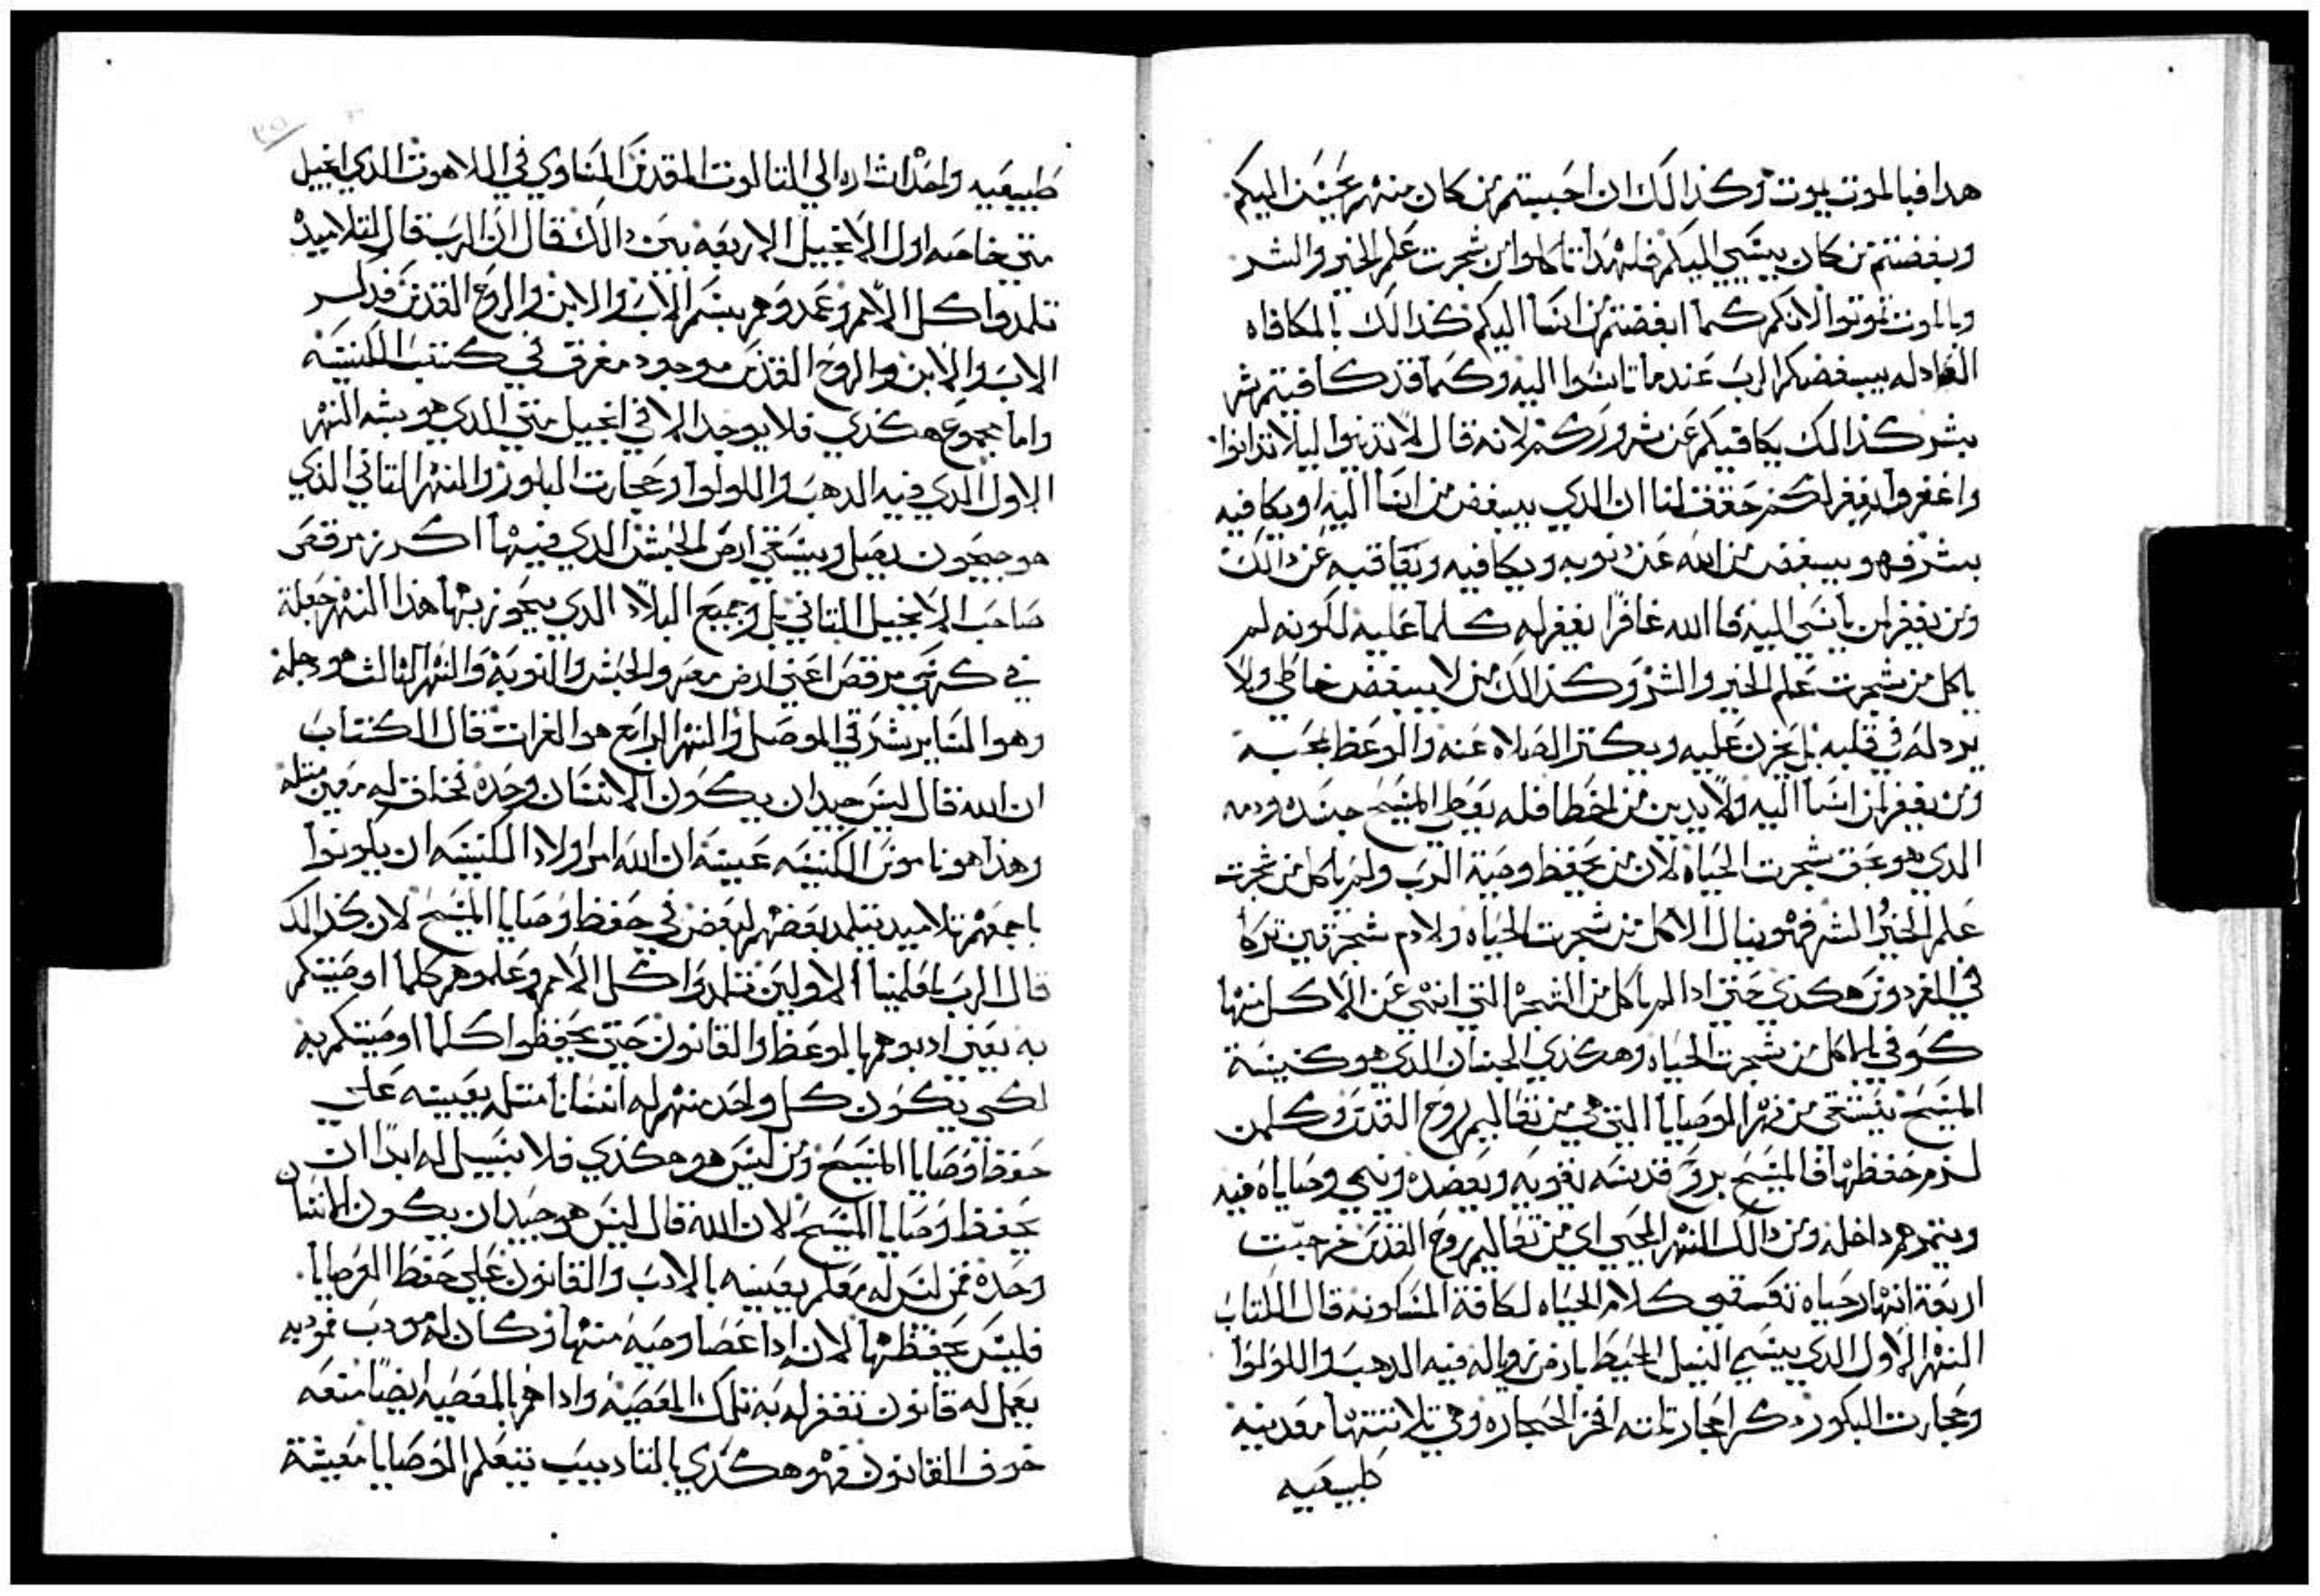 هدا فبالموت يموت وكذالك ان احببتم من كان منهم محسن اليكم
وبغضتم من كان يسي اليكم فلهدا تاكلوا من شجرت علم الخير والشر
وبالموت تموتوا لانكم كما ابغضتم من اسا اليكم كذالك بالمكافاه
العادله يبغضكم الرب عندما تاسوا اليه وكما قد كافيتم شر
بشر كذالك يكافيكم عن شرور كتير لانه قال لا تدينوا ليلا تدانوا
واغفروا يغفر لكم حقق لنا ان الدي يبغض من اسا اليه او يكافيه
بشر فهو يبغض من الله عن دنوبه ويكافيه ويعاقبه عن دالك
ومن يغفر لمن ياسي اليه فاالله غافرا يغفر له كلما عليه لكونه لم
ياكل من شجرت علم الخير والشر وكذالك من لا يبغض خاطي ولا
يردله في قلبه بل يحزن عليه ويكتر الصلاه عنه والوعظ بمحبه
ومن يغفر لمن اسا اليه ولا يدين من اخطا فله يعطي المسيح جسده ودمه
الدي هو بحق شجرت الحياه لان من يحفظ وصية الرب ولم ياكل من شجرت
علم الخير والشر فهو ينال الاكل من شجرت الحياه ولادم شجرتين تركا
في الفردوس هكدي حتي ادا لم ياكل من الشجره التي انتهي عن الاكل منها
كوفي بالاكل من شجرت الحياه وهكدي الجنان الدي هو كنيسة
المسيح تستقي من نهر الوصايا التي هي من تعاليم روح القدس وكلمن
لزم حفظها فالمسيح بروح قدسه يقويه ويعضده وينمي وصاياه فيه
ويتمرهم داخله ومن دالك النهر المحيي اي من تعاليم روح القدس خرجت
اربعة انهار حياه تسقي كلام الحياه لكافة المسكونه قال الكتاب
النهر الاول الدي يسمي النيل المحيط بارض زويله فيه الدهب واللولوا
وحجارت البلور دكر احجار تلته افخر الحجاره وهي تلاتتها معدنيه
طبيعيه
طبيعيه واحد اشاره الي التالوت المقدس المتساوي في اللاهوت الدي انجيل
متي خاصه اول الانجيل الاربعه بين دالك قال ان الرب قال لتلاميده
تلمدوا كل الامم وعمدوهم بسم الاب والابن والروح القدس فدكر
الاب والابن والروح القدس موجود مفرق في كتب الكنيسه
واما مجموع هكذي فلا يوجد الا في انجيل متي الدي هو يشبه النهر
الاول الدي فيه الدهب واللولوا وحجارت البلور والنهر التاني الذي
هو جيحون يصل ويسقي ارض الحبش الدي فيها اكرز مرقص
صاحب الانجيل التاني بل وجميع البلاد الدي يجوز بها هذا النهر جعلة
في كرسي مرقص اعني ارض مصر والحبش والنوبة والنهر الثالث هو دجله
وهوا الساير شرقي الموصل والنهر الرابع هو الفرات قال الكتاب
ان الله قال ليس جيد ان يكون الانسان وحده نخلق له معين مثله
وهذا هو ناموس الكنيسه عينه ان الله امر اولاد الكنيسه ان يكونوا
باجمعهم تلاميد يتلمد بعضهم لبعض في حفظ وصايا المسيح لان كذالك
قال الرب لمعلمينا الاولين تلمدوا كل الامم وعلموهم كلما اوصيتكم
به يعني ادبوهم بالوعظ والقانون حتي يحفظوا كلما اوصيتكم به
لكي يكون كل واحد منهم له انسانا مثله يعينه علي
حفظ وصايا المسيح ومن ليس هو هكذي فلا سبيل له ابدا ان
يحفظ وصايا المسيح لان الله قال ليس هو جيد ان يكون الانسان
وحده فمن ليس له معلم يعينه بالادب والقانون علي حفظ الوصايا
فليس يحفظها لان ادا عصا وصيه منها وكان له مودب فمودبه
يعمل له قانون تغفر له به تلك المعصيه وادا هم بالمعصيه ايضا منعه
خوف القانون فهو هكدي بالتاديب يتعلم الوصايا معيشة